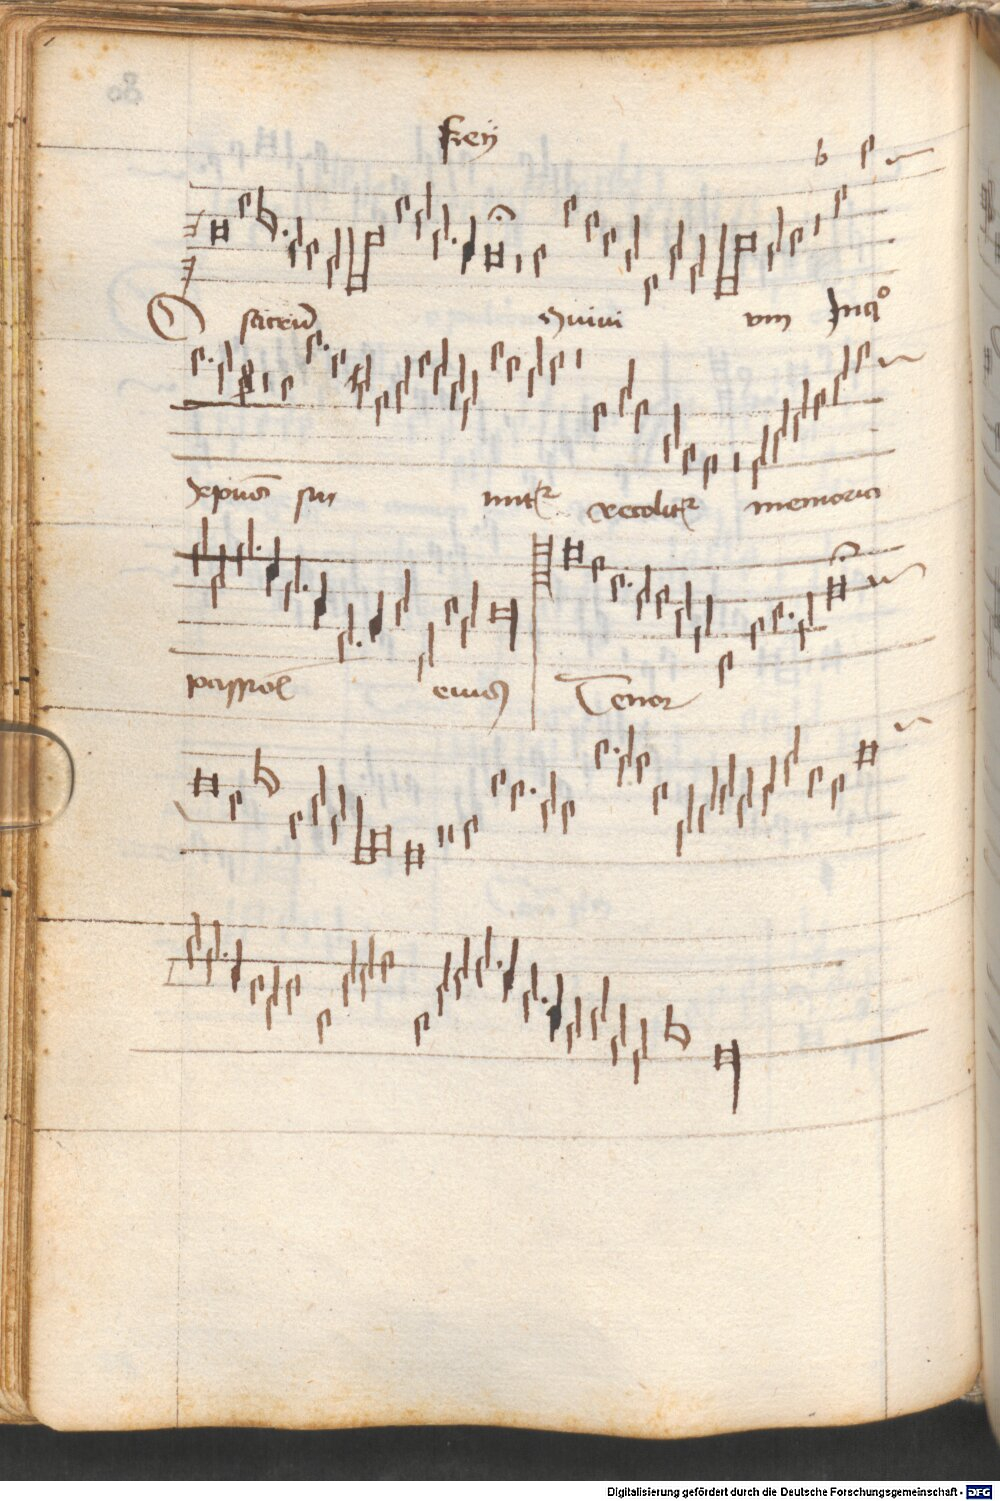 Frey
O sacrum Conuiui um Inq°
xpūs su mit͛ recolit͛ memoria
passiōs eius Tenor
Digitalisierung gefördert durch die Deutsche Forschungsgemeinschaft - DFG